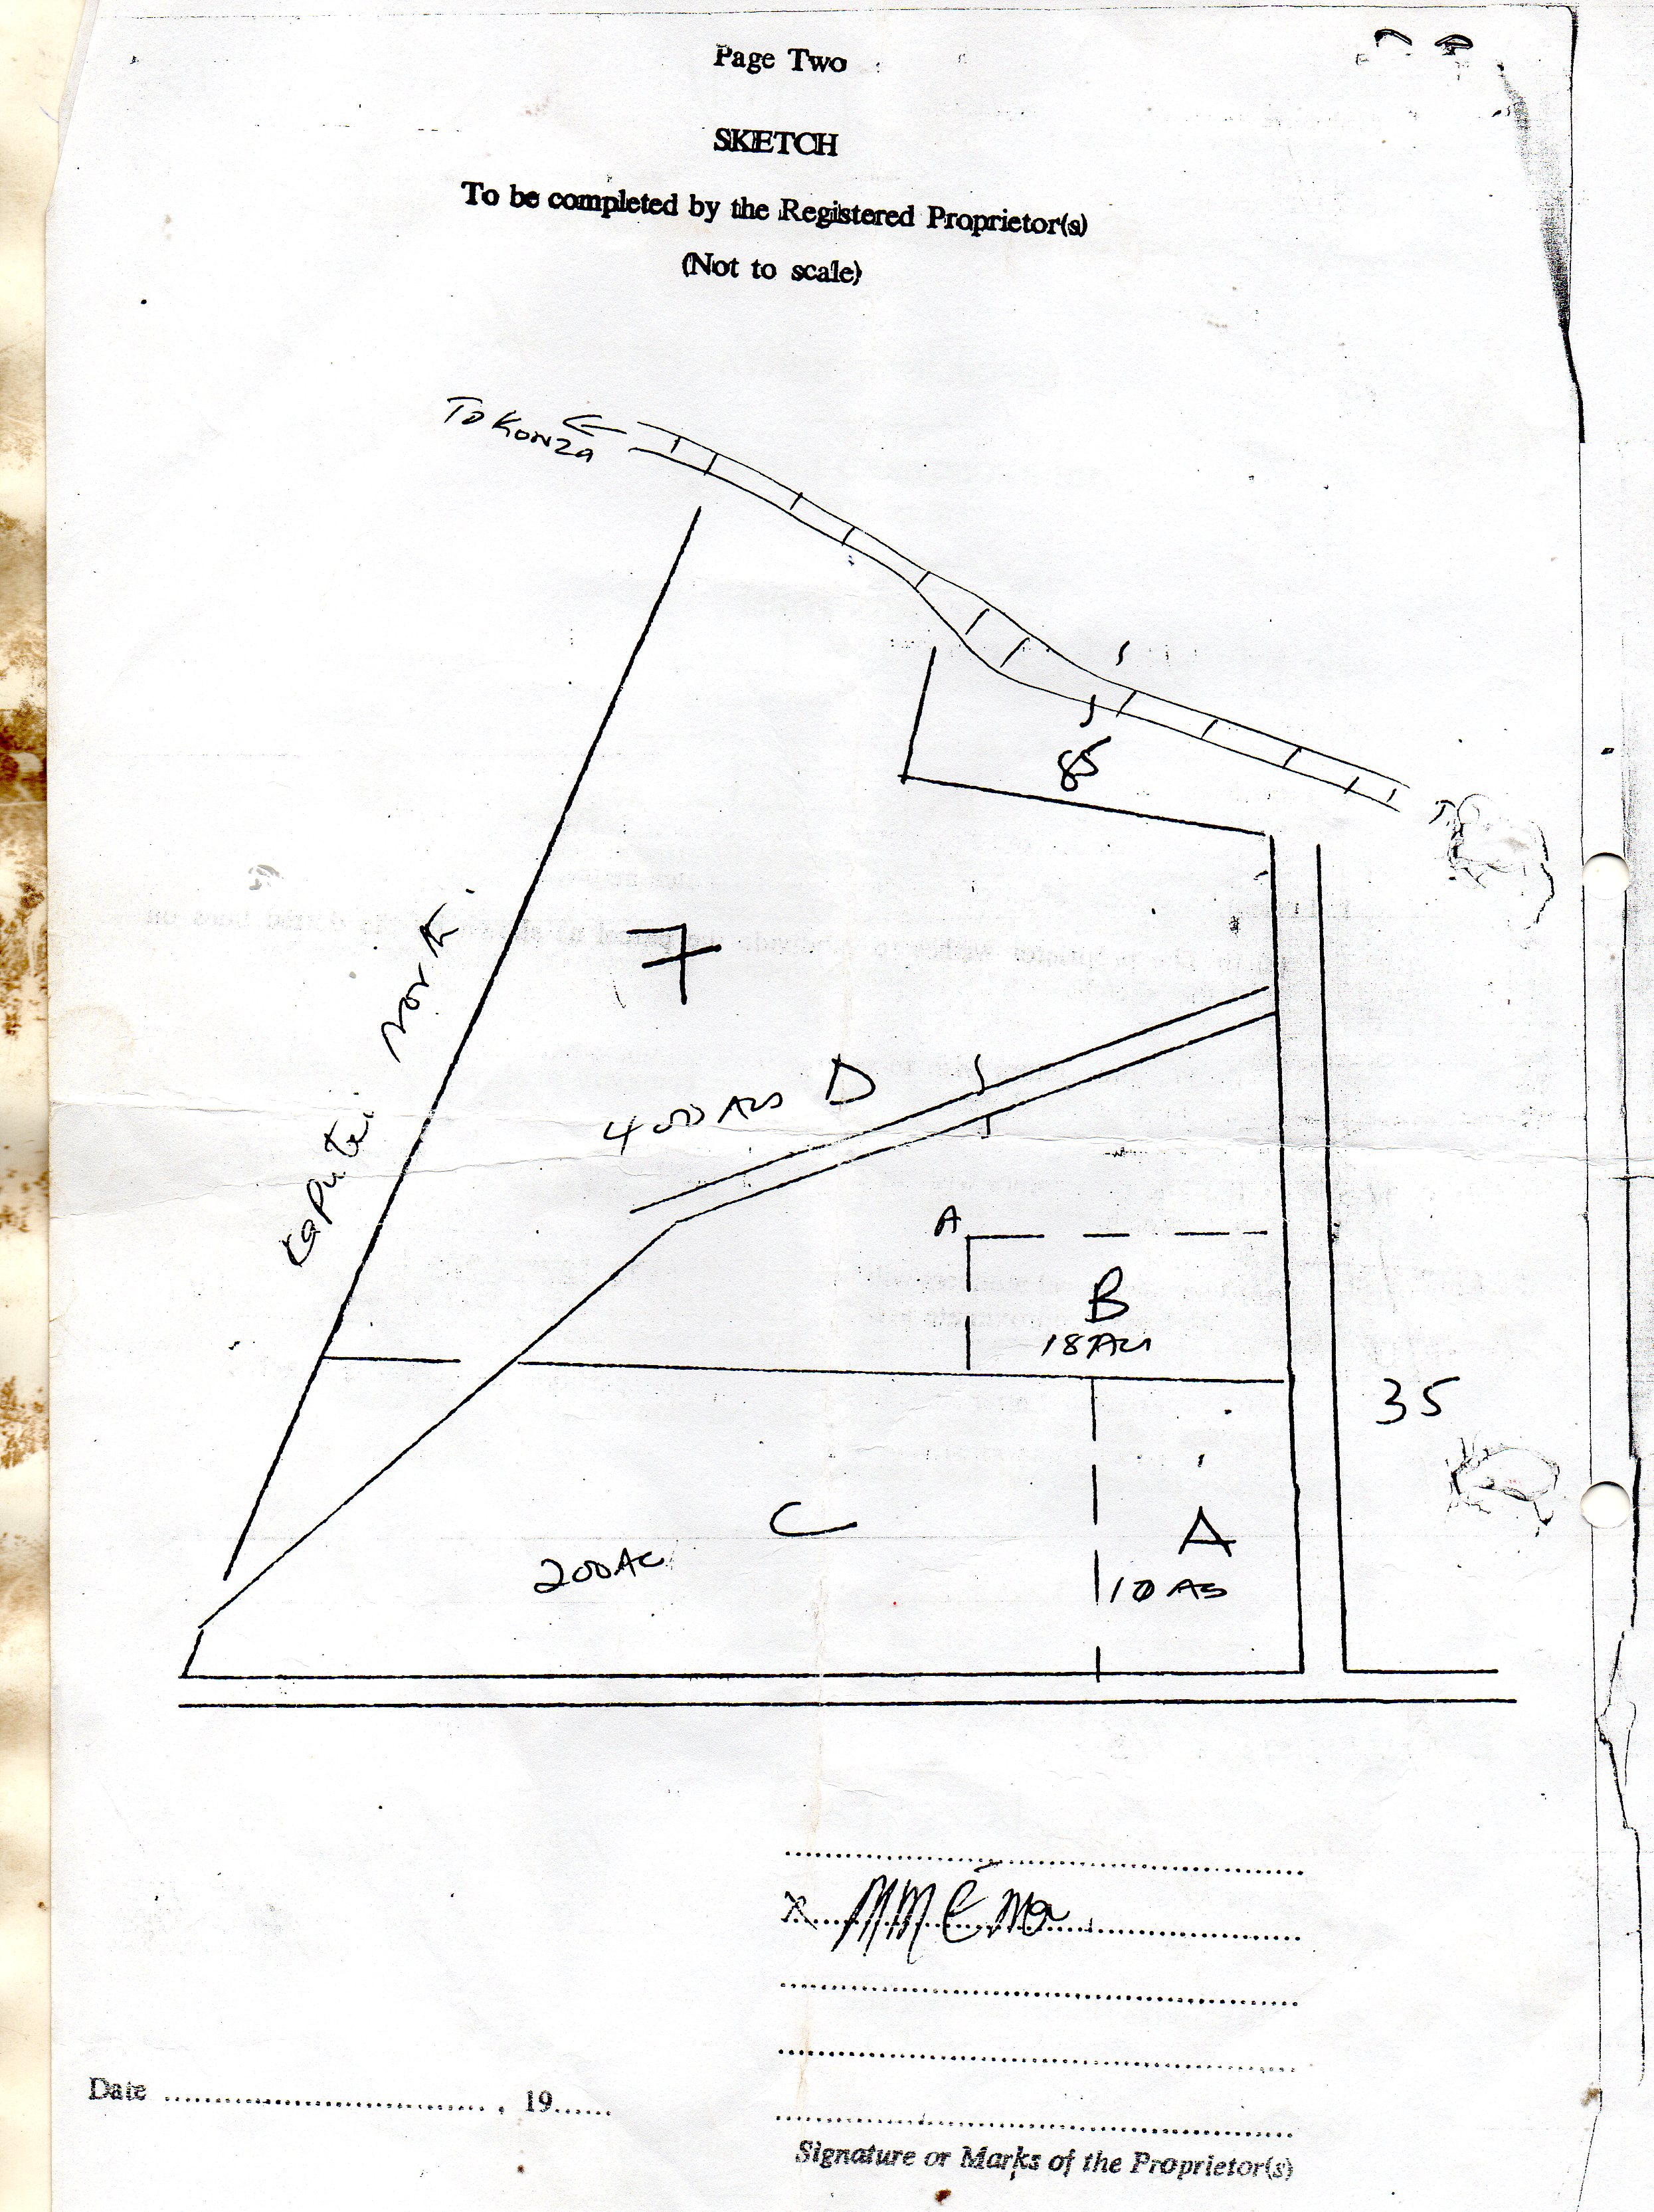 Page Two
SKETCH
To be completed by the Registered Proprietor(s)
(Not to scale)
TO KONZA
85
7
Kaputei North
400 ACS D
A
B
18 ACS
35
C
A
200 AC
10 AS
X
Date ..............................., 19......
Signature or Marks of the Proprietor(s)